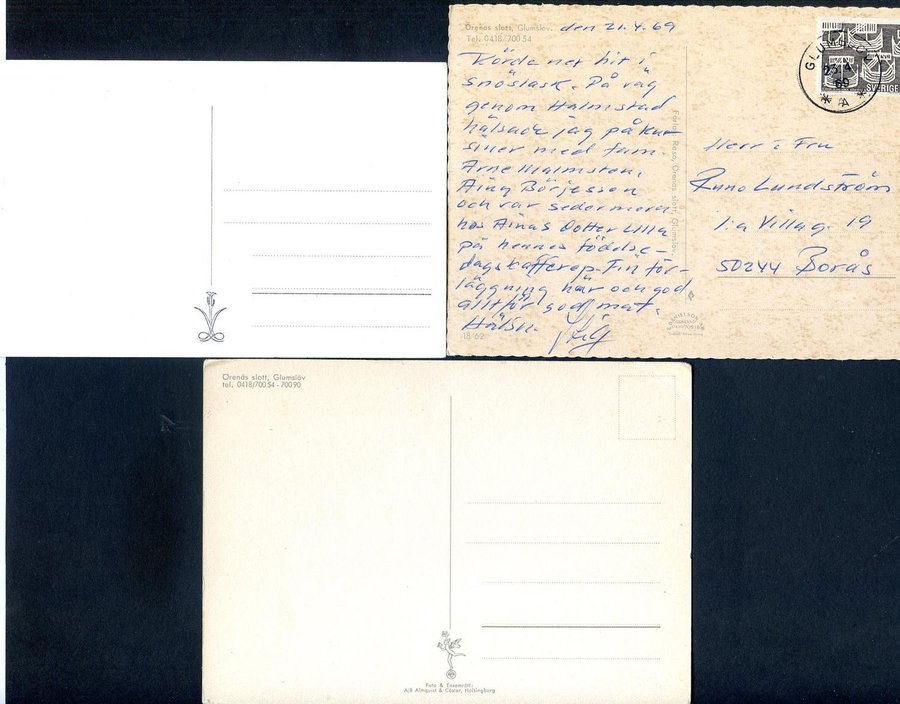 Örenäs slott, Glumslöv.
Tel. 0418/700 54
den 21.4.69
Körde ner hit i
snöslask. På väg
genom Halmstad
hälsade jag på Ku-
siner med fam.
Arne Malmsten,
Aina Börjesson
och var sedermera
hos Ainas Dotter Ulla
på hennes födelse-
dagskafferep. Fin för-
läggning här och god
alltför god mat.
Hälsn.
18 62
Förlag: Roso, Örenäs slott, Glumslöv.
GLUMSLÖV
23.4.
69
* A *
SVERIGE
Herr & Fru
Runo Lundström
1:a Villag. 19
50244 Borås
Örenäs slott, Glumslöv
tel. 0418/700 54 - 700 90
Foto & Ensamrätt:
A/B Almquist & Cöster, Hälsingborg